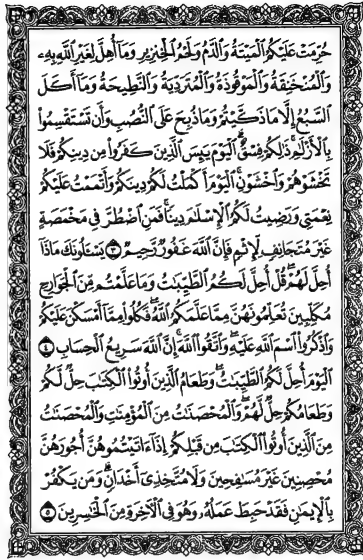 حُرِّمَتْ عَلَيْكُمُ الْمَيْتَةُ وَالدَّمُ وَلَحْمُ الْخِنزِيرِ وَمَا أُهِلَّ لِغَيْرِ اللَّهِ بِهِ
وَالْمُنْخَنِقَةُ وَالْمَوْقُوذَةُ وَالْمُتَرَدِّيَةُ وَالنَّطِيحَةُ وَمَا أَكَلَ
السَّبُعُ إِلَّا مَا ذَكَّيْتُمْ وَمَا ذُبِحَ عَلَى النُّصُبِ وَأَن تَسْتَقْسِمُوا
بِالْأَزْلَٰمِ ذَٰلِكُمْ فِسْقٌ ۗ الْيَوْمَ يَئِسَ الَّذِينَ كَفَرُوا مِن دِينِكُمْ فَلَا
تَخْشَوْهُمْ وَاخْشَوْنِ ۚ الْيَوْمَ أَكْمَلْتُ لَكُمْ دِينَكُمْ وَأَتْمَمْتُ عَلَيْكُمْ
نِعْمَتِي وَرَضِيتُ لَكُمُ الْإِسْلَٰمَ دِينًا ۚ فَمَنِ اضْطُرَّ فِي مَخْمَصَةٍ
غَيْرَ مُتَجَانِفٍ لِّإِثْمٍ فَإِنَّ اللَّهَ غَفُورٌ رَّحِيمٌ ۝٣ يَسْـَٔلُونَكَ مَاذَا
أُحِلَّ لَهُمْ ۖ قُلْ أُحِلَّ لَكُمُ الطَّيِّبَٰتُ وَمَا عَلَّمْتُم مِّنَ الْجَوَارِحِ
مُكَلِّبِينَ تُعَلِّمُونَهُنَّ مِمَّا عَلَّمَكُمُ اللَّهُ ۖ فَكُلُوا مِمَّا أَمْسَكْنَ عَلَيْكُمْ
وَاذْكُرُوا اسْمَ اللَّهِ عَلَيْهِ ۖ وَاتَّقُوا اللَّهَ ۚ إِنَّ اللَّهَ سَرِيعُ الْحِسَابِ ۝٤
الْيَوْمَ أُحِلَّ لَكُمُ الطَّيِّبَٰتُ ۖ وَطَعَامُ الَّذِينَ أُوتُوا الْكِتَٰبَ حِلٌّ لَّكُمْ
وَطَعَامُكُمْ حِلٌّ لَّهُمْ ۖ وَالْمُحْصَنَٰتُ مِنَ الْمُؤْمِنَٰتِ وَالْمُحْصَنَٰتُ
مِنَ الَّذِينَ أُوتُوا الْكِتَٰبَ مِن قَبْلِكُمْ إِذَا ءَاتَيْتُمُوهُنَّ أُجُورَهُنَّ
مُحْصِنِينَ غَيْرَ مُسَٰفِحِينَ وَلَا مُتَّخِذِي أَخْدَانٍ ۗ وَمَن يَكْفُرْ
بِالْإِيمَٰنِ فَقَدْ حَبِطَ عَمَلُهُ وَهُوَ فِي الْآخِرَةِ مِنَ الْخَٰسِرِينَ ۝٥